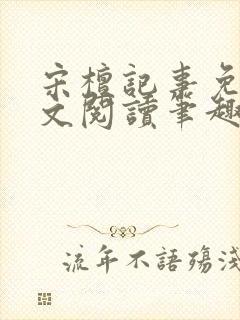 宋檀記事免
文閱讀筆趣
流年不語殤淺